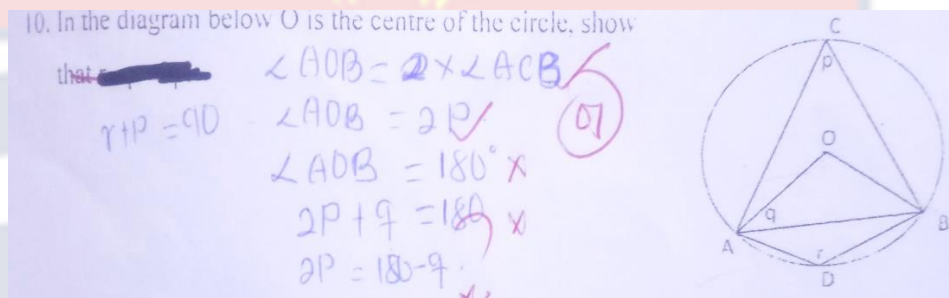 10. In the diagram below O is the centre of the circle, show
that
r+p =90
∠AOB = 2×∠ACB
∠AOB = 2P
∠AOB = 180°
2P + q = 180
2P = 180-q
07
C
P
O
q
A
B
r
D